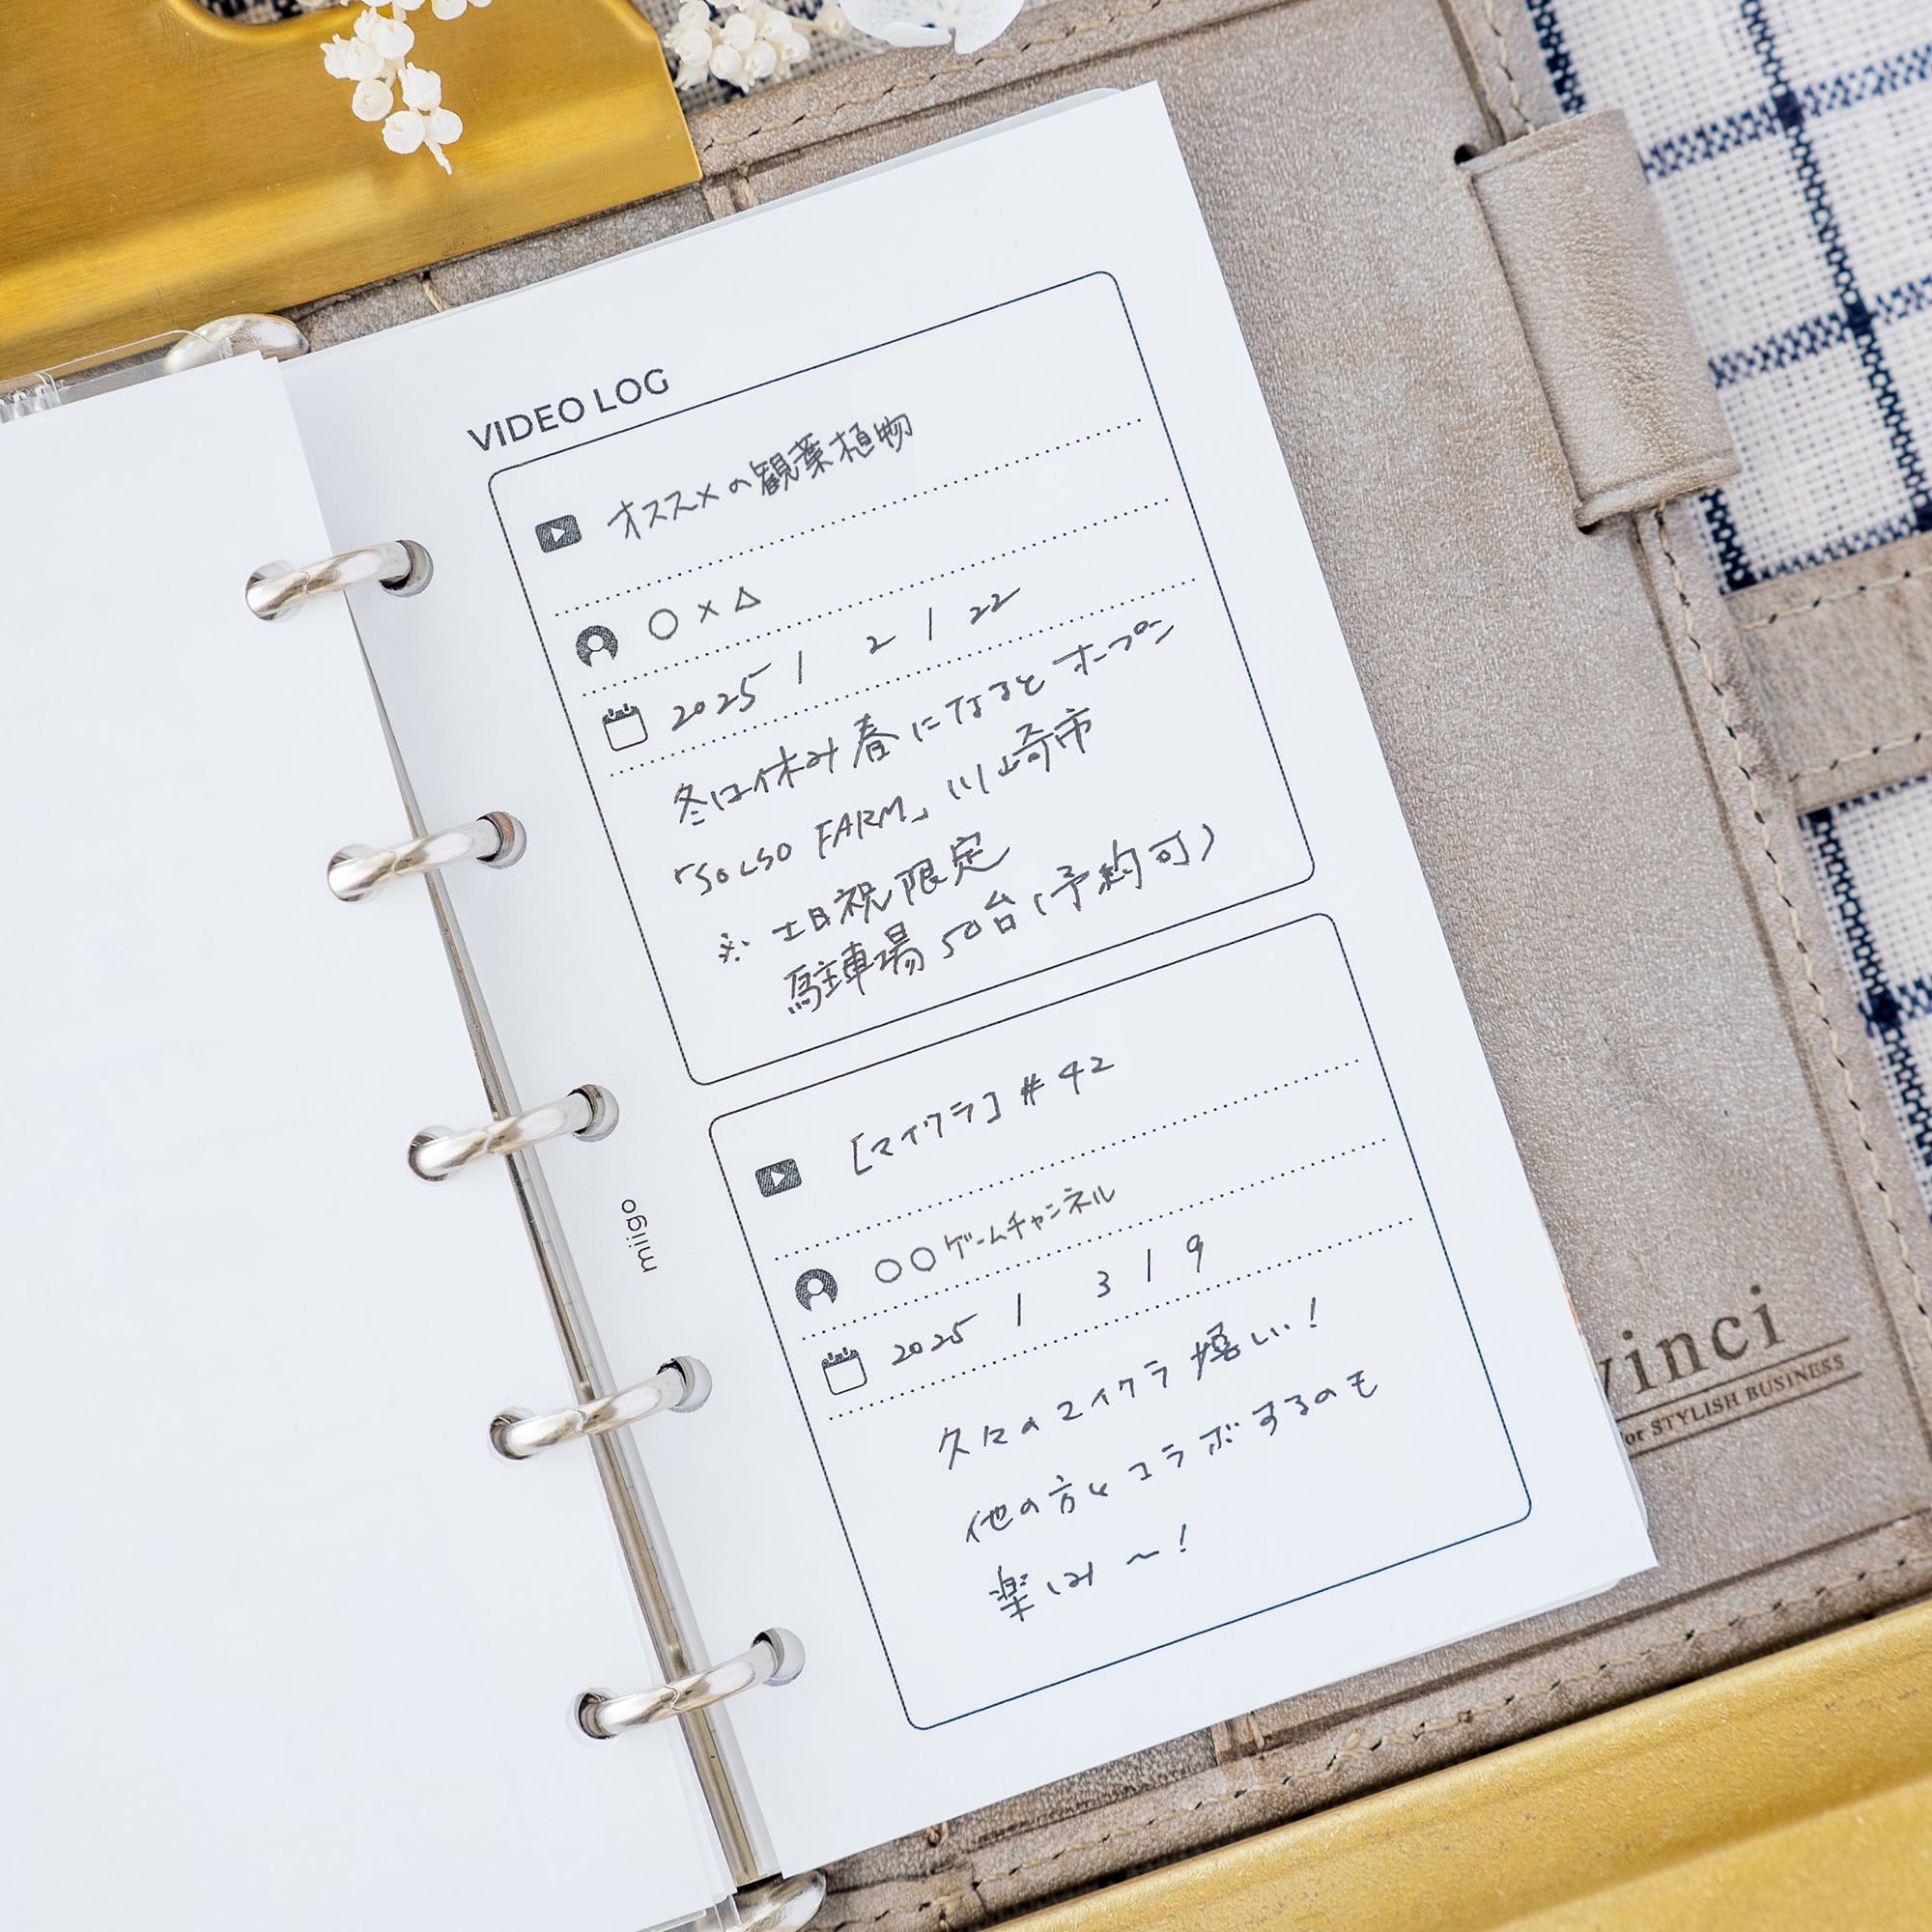 VIDEO LOG
オススメの観葉植物
○×△
2025 / 2 / 22
冬は休み春になるとオープン
「SOLSO FARM」川崎市
※ 土日祝限定
駐車場50台(予約可)
[マイクラ] #42
○○ゲームチャンネル
2025 / 3 / 9
久々のマイクラ嬉しい!
他の方とコラボするのも
楽しみ〜!
miigo
vinci
for STYLISH BUSINESS